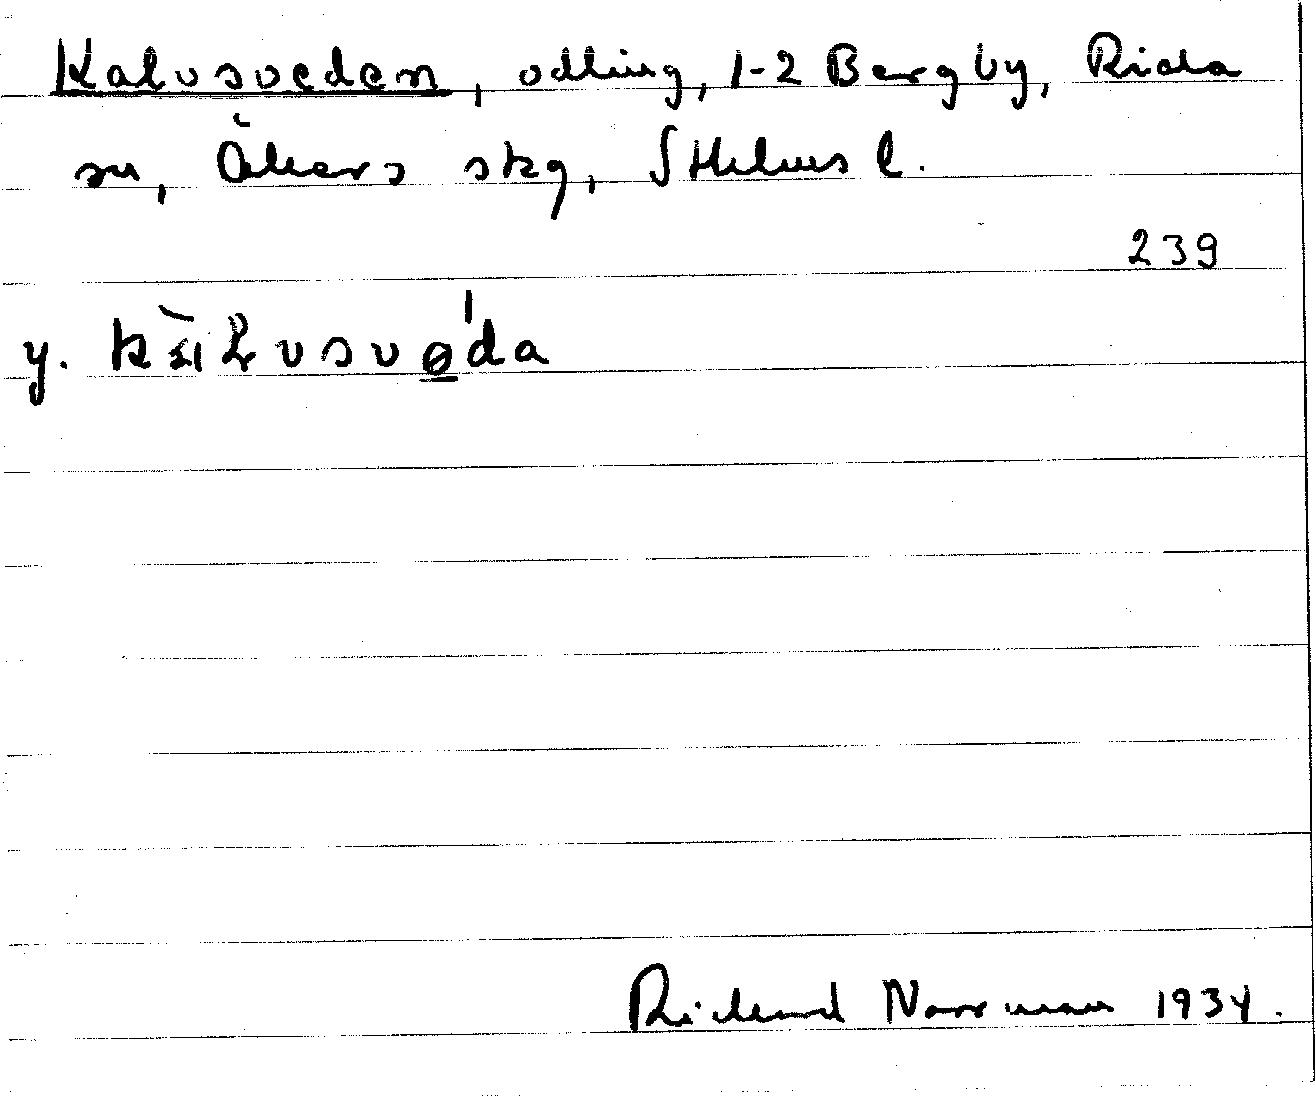 Kalvsveden, odling, 1-2 Bergby, Riala
sn, Åkers skg, Sthlms l.
239
y.
Rickard Norrman 1934.